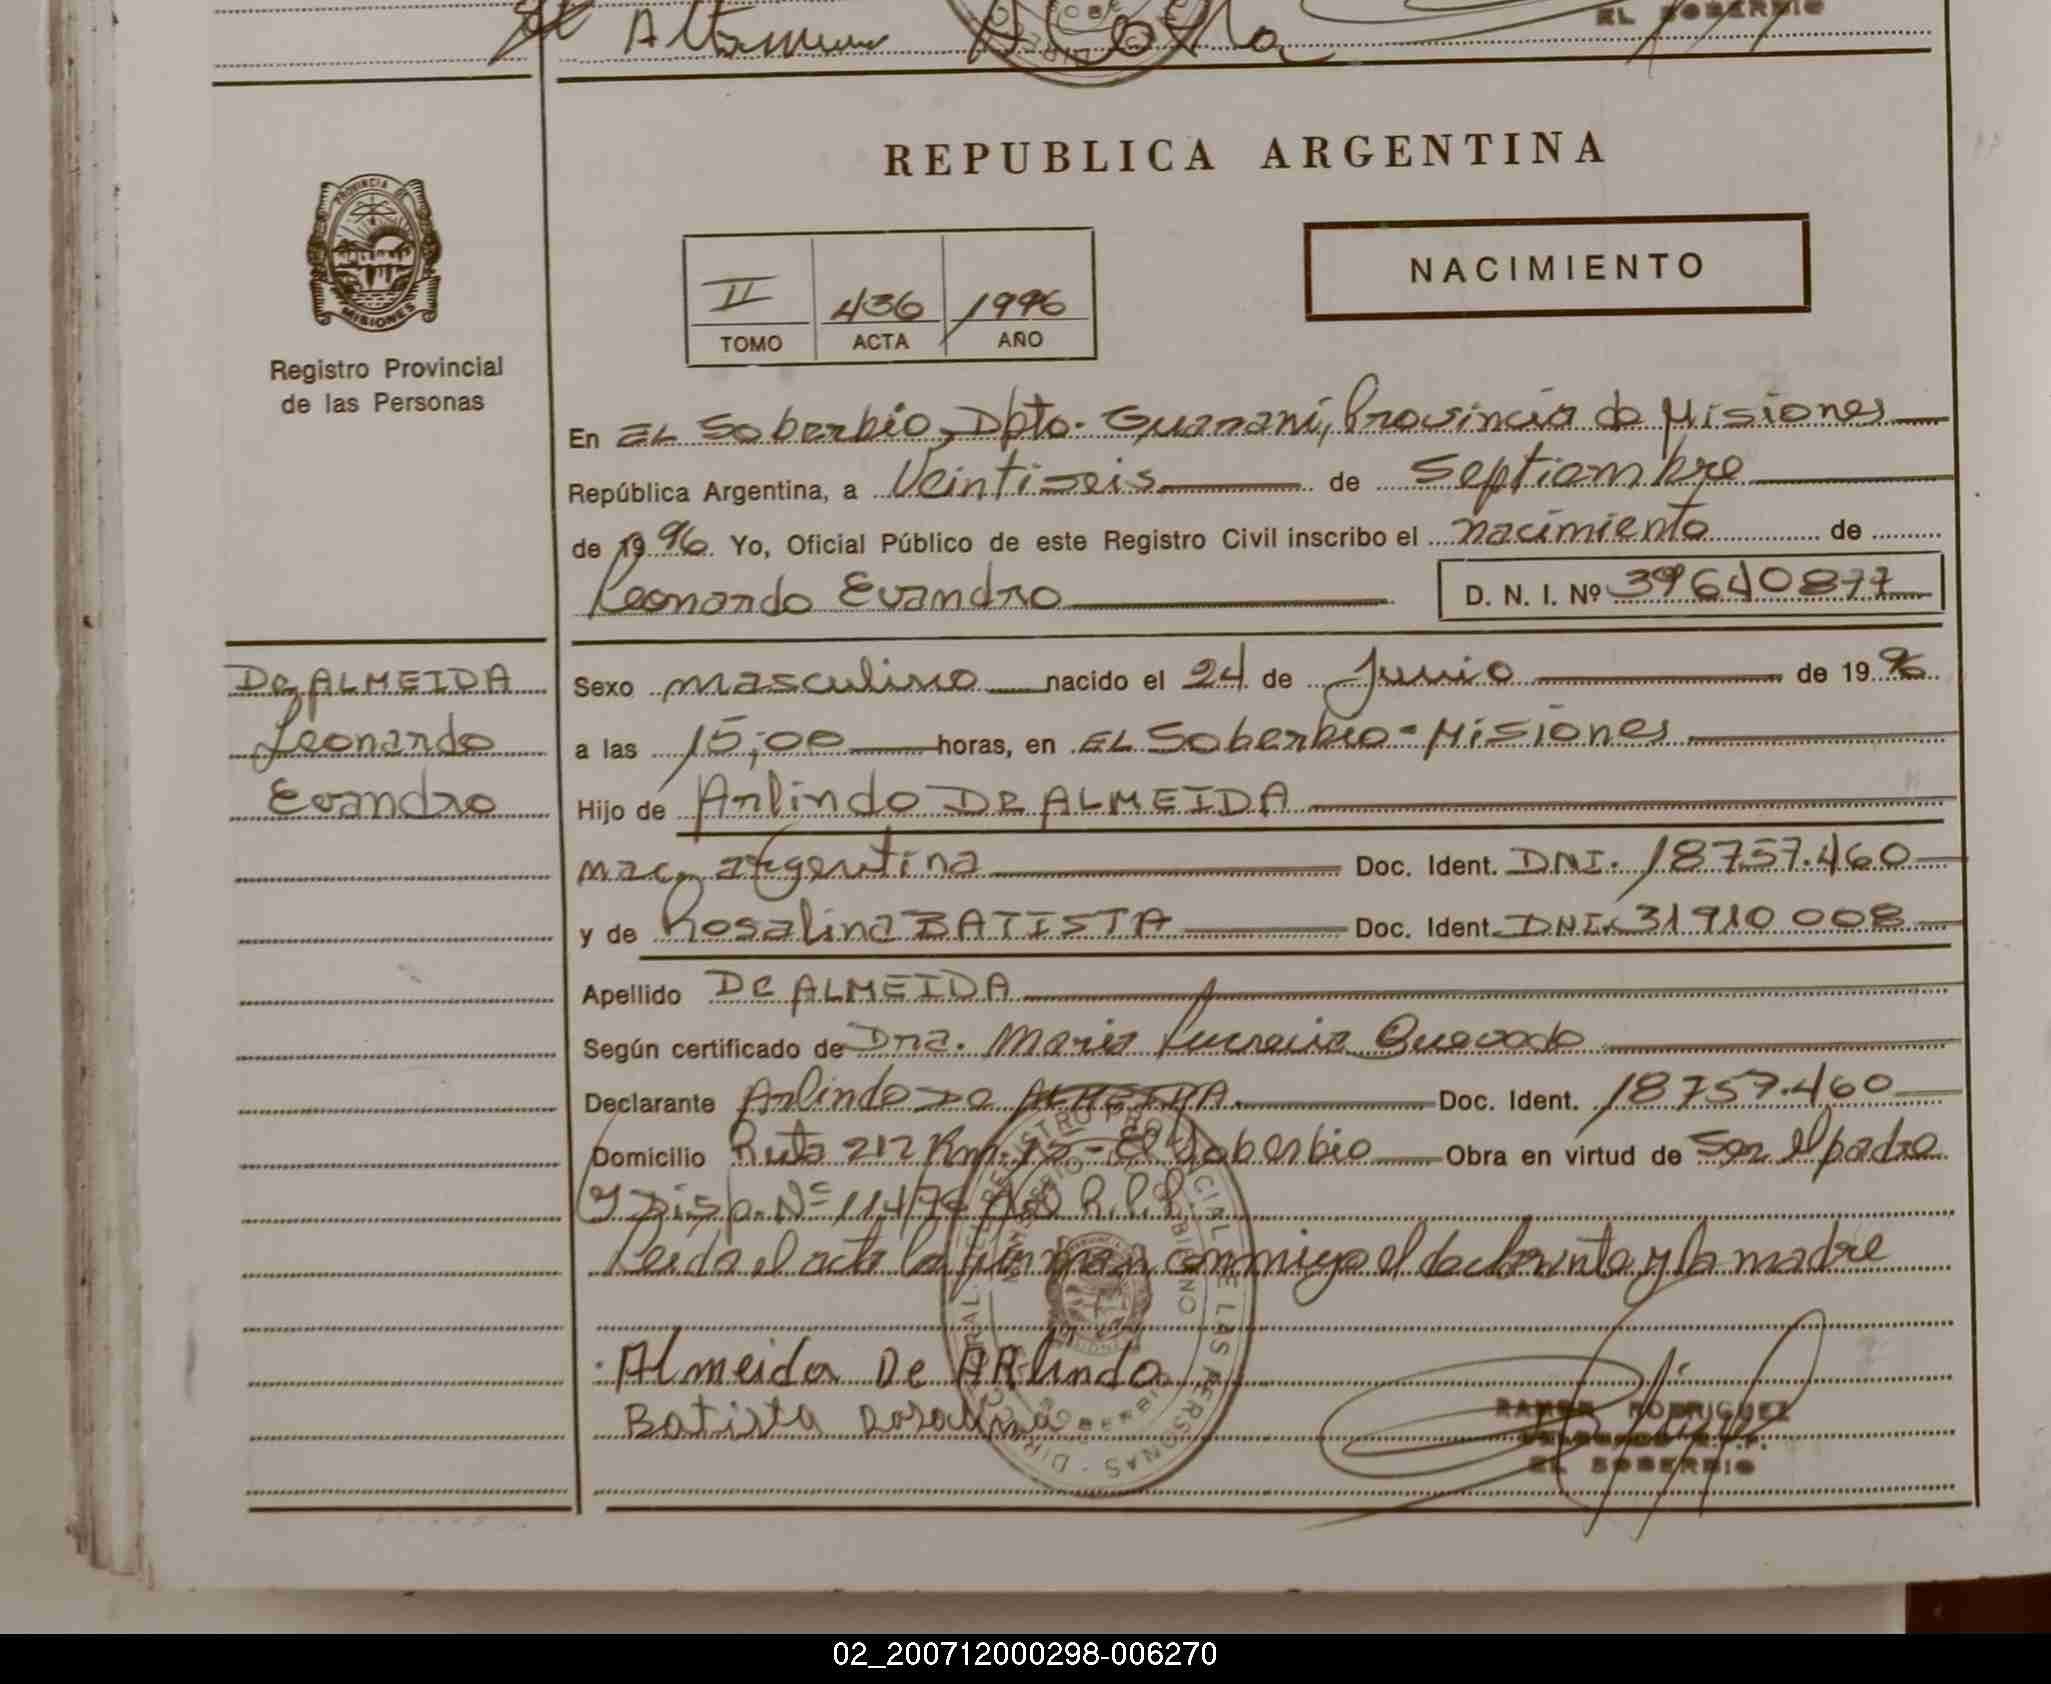 Altamiro
EL SOBERBIO
REPUBLICA ARGENTINA
PROVINCIA DE
MISIONES
Registro Provincial
de las Personas
NACIMIENTO
II 436 1996
TOMO ACTA AÑO
En EL Soberbio, Dpto. Guaraní, Provincia de Misiones
República Argentina, a Veintiseis de Septiembre
de 1996. Yo, Oficial Público de este Registro Civil inscribo el nacimiento de
Leonardo Evandro D. N. I. Nº 39640877
De ALMEIDA
Leonardo
Evandro
Sexo masculino nacido el 24 de Junio de 1996
a las 15,00 horas, en EL Soberbio - Misiones
Hijo de Arlindo DE ALMEIDA
nac. argentina Doc. Ident. DNI. 18757.460
y de Rosalina BATISTA Doc. Ident. DNI. 31910 008
Apellido DE ALMEIDA
Según certificado de Dra. Maria Lucrecia Quevedo
Declarante Arlindo De ALMEIDA Doc. Ident. 18757.460
Domicilio Ruta 212 Km. - El Soberbio Obra en virtud de Ser el padre
y Disp. Nº 114/76 R.P.P.
Leida el acta la firman conmigo el declarante y la madre
Almeida De ARlindo
Batista Rosalina
RAMON RODRIGUEZ
EL SOBERBIO
02_200712000298-006270